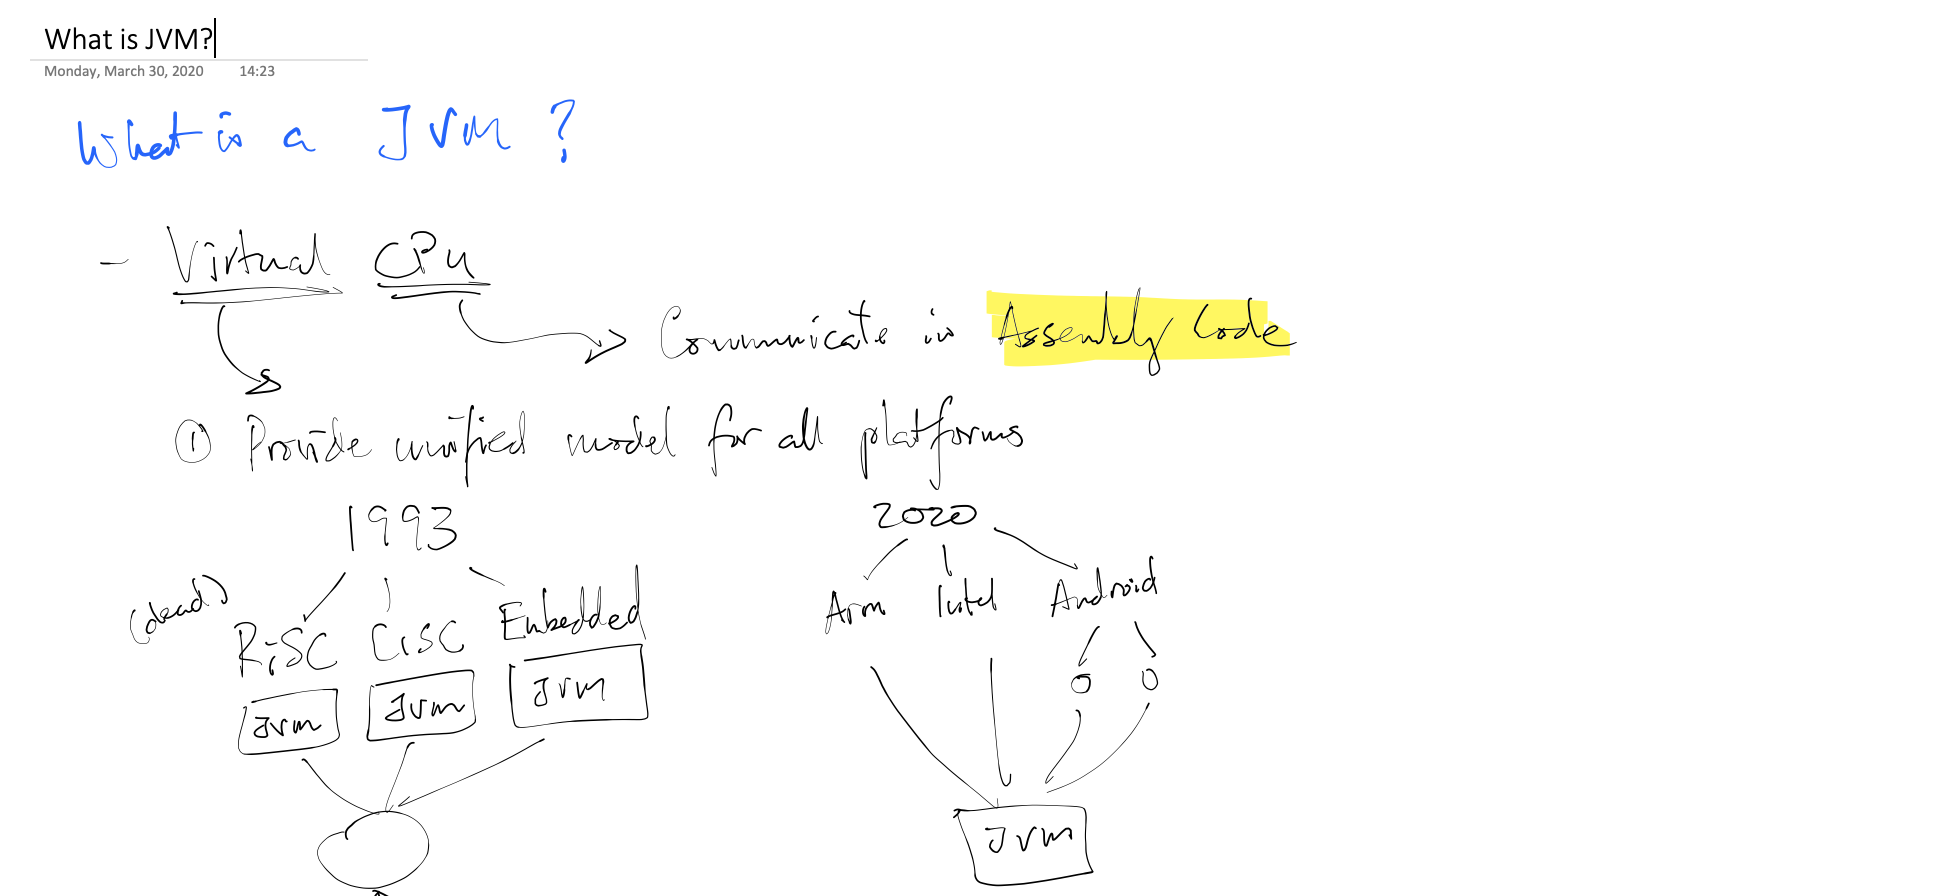 What is JVM?
Monday, March 30, 2020 14:23
What is a JVM ?
- Virtual CPU
Communicate in Assembly Code
① Provide unified model for all platforms
1993 2020
(dead) RISC CISC Embedded
Arm Intel Android
JVM JVM JVM
JVM